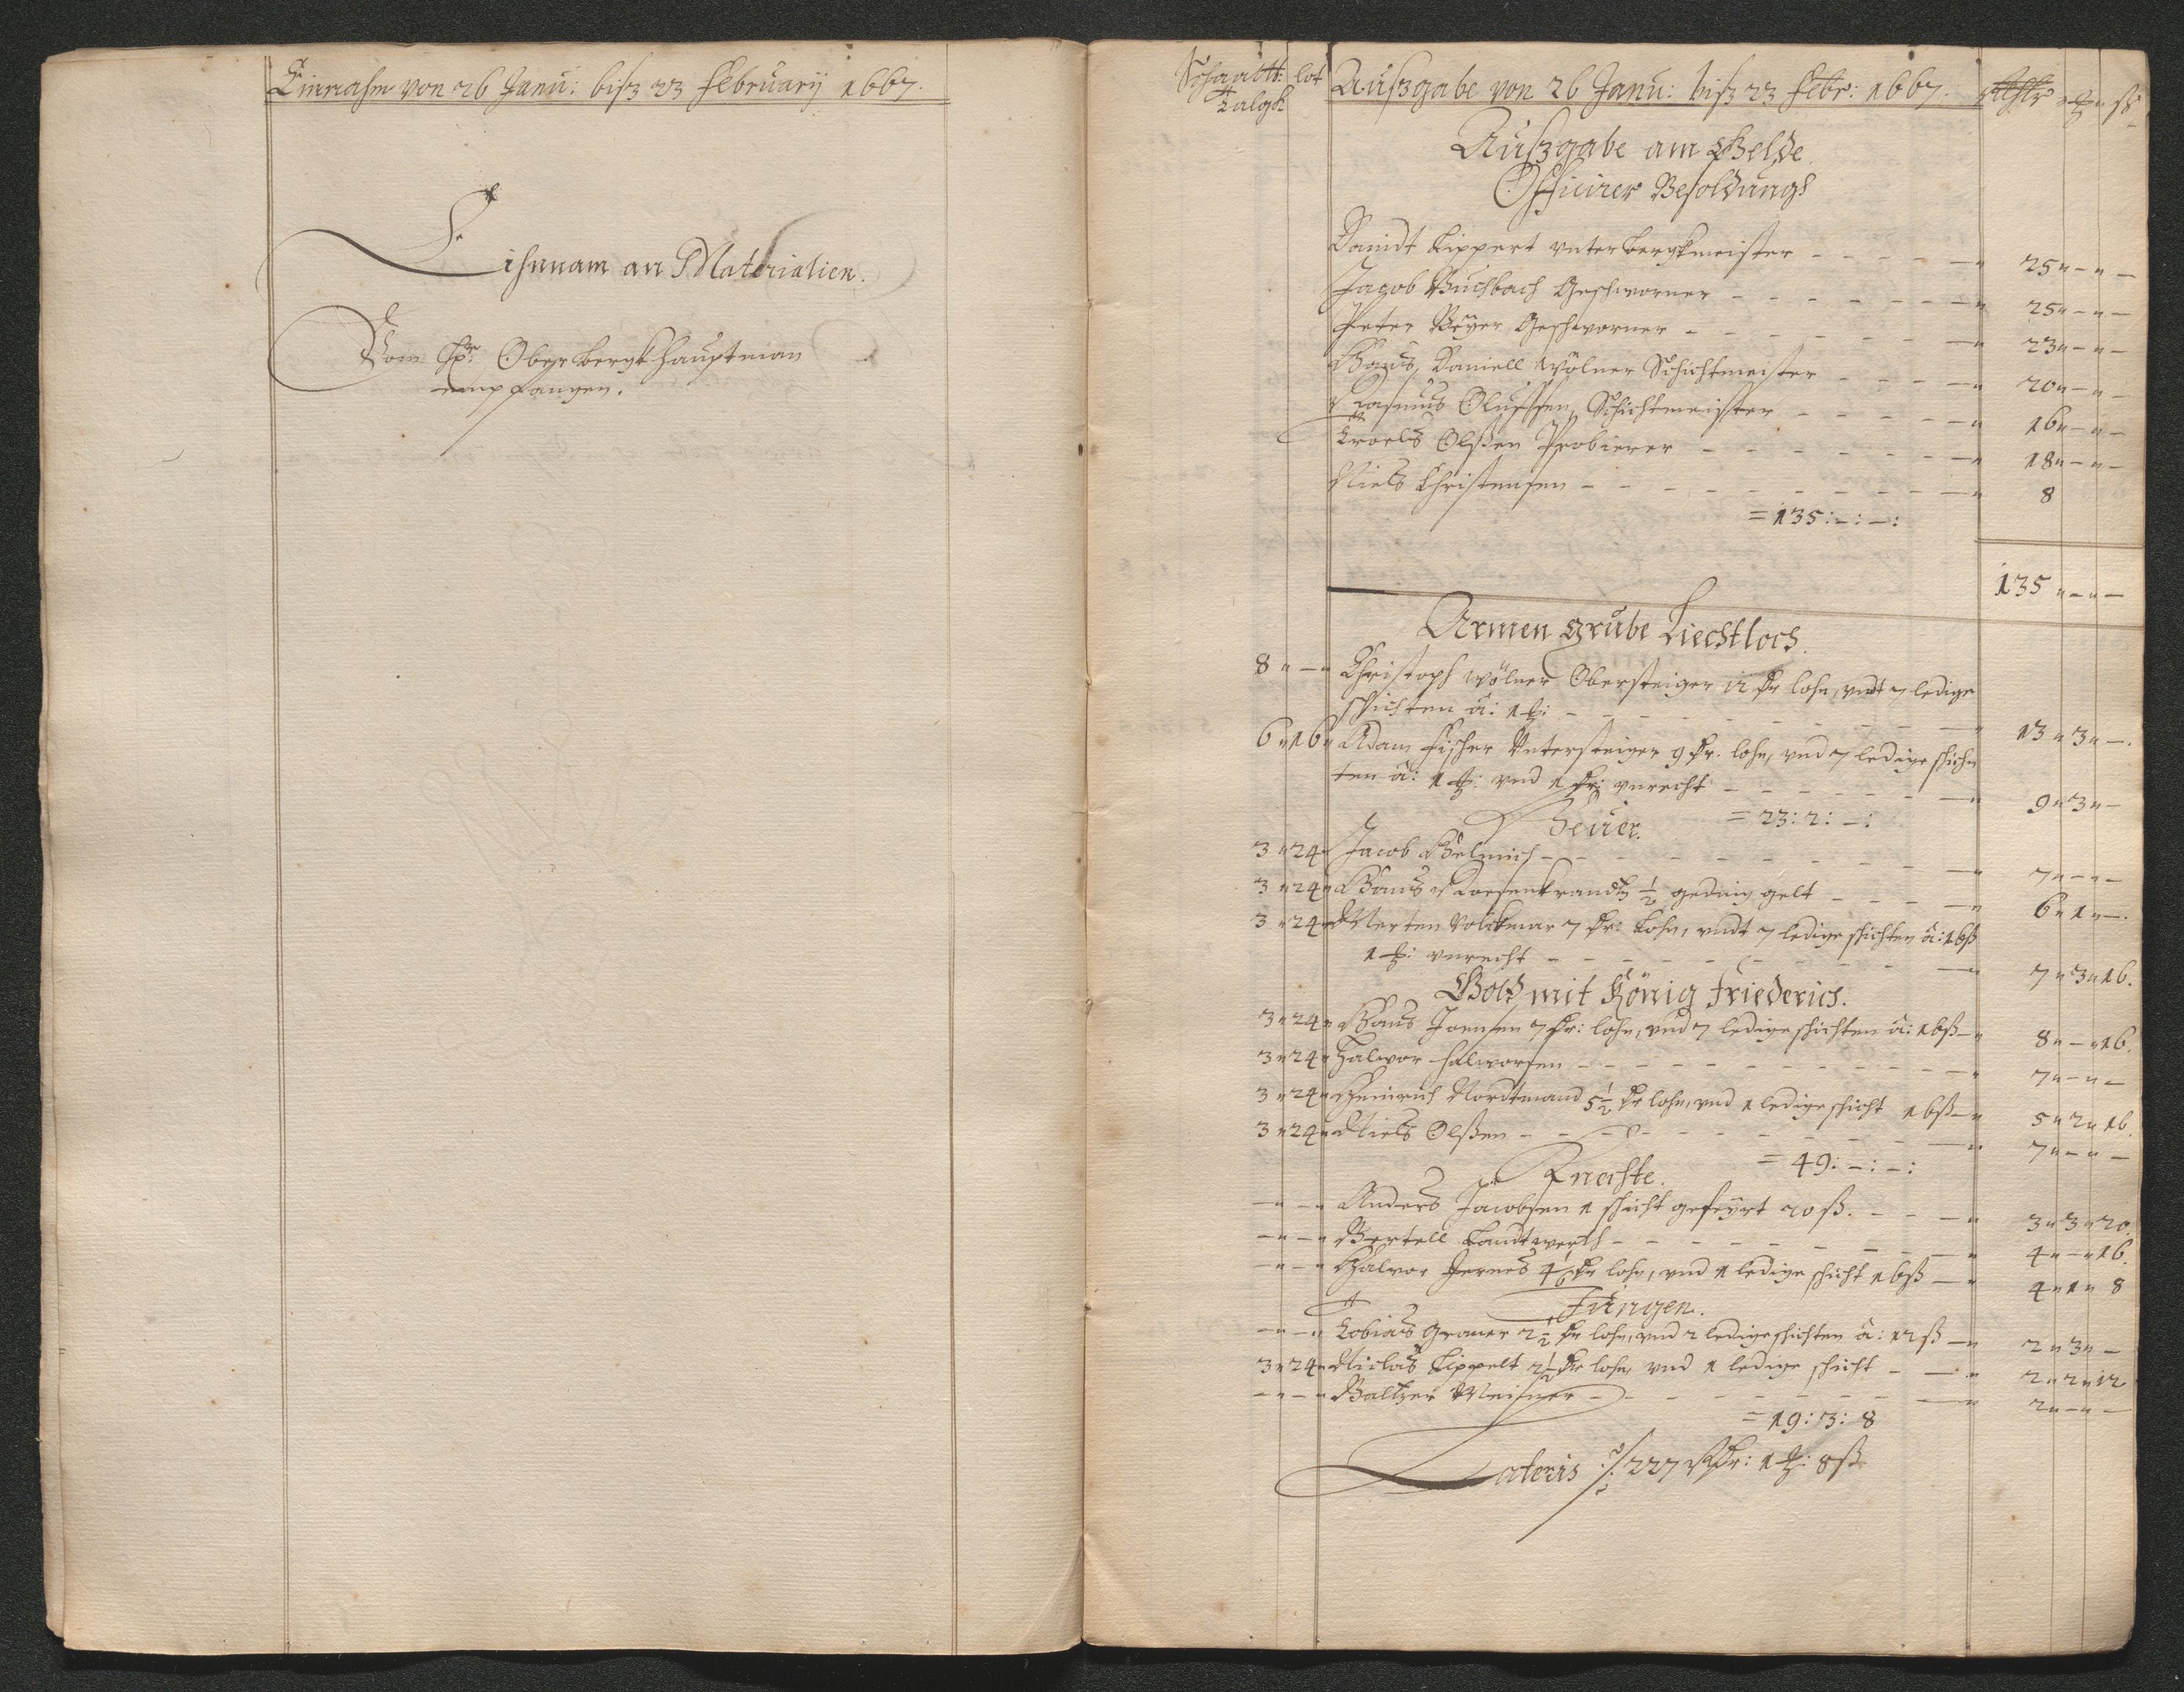 Einnahm von 26 Janu: bisz 23 February 1667.
Einnam an Materialien.
Vom Hr: Ober Bergkhauptman
empfangen.
Schaatt: lot
Talgk
Auszgabe von 26 Janu: bisz 23 Febr: 1667. Rthlr " ß
Auszgabe am Gelde
Officirer Besoldungh
Davidt Lippert vnter Bergkmeister - - - - " 25 " - " -
Jacob Buchbach Geschworner - - - - - " 25 " - " -
Peter Beÿer Geschworner - - - - - " 23 " - " -
Hans Daniell Wölner Schichtmeister - - - " 20 " - " -
Rasmus Olufsen Schichtmeister - - - - " 16 " - " -
Troels Olßen Probierer - - - - - - " 18 " - " -
Niels Christensen - - - - - - - " 8
= 135 : - : - :
135 " - " -
Armen grube Liechtloch.
8 " - " Christoph Wölner Obersteiger 12 Rr lohn, vndt 7 ledige
schichten â: 1 : - - - - - - " 13 " 3 " - .
6 " 16 " Adam Fischer Vntersteiger 9 Rr. lohn, vnd 7 ledige schich
ten â: 1 : vnd 1 Rr: vnrecht - - - - " 9 " 3 " -
Heuer. = 23 : 2 : - :
3 " 24 " Jacob Helmich - - - - - - - 7 " - " -
3 " 24 " Hans Rosenkrandtz ½ geding gelt - - - " 6 " 1 " - .
3 " 24 " Merten Volckmar 7 Rr: Lohn, vndt 7 ledige schichten â: 16 ß
1 : vnrecht - - - - - - - 7 " 3 " 16.
Gold mit König Friederich.
3 " 24 " Hans Joensen 7 Rr: lohn, vnd 7 ledige schichten â: 16 ß - " 8 " - " 16.
3 " 24 " Halvor Halvorsen - - - - - - - " 7 " - " -
3 " 24 " Heinrich Nordtmand 5½ Rr lohn, vnd 1 ledige schicht 16 ß - " 5 " 2 " 16.
3 " 24 " Niels Olßen - - - - - - - " 7 " - " -
Knechte. = 49 : - : - :
- " - " Anders Jacobsen 1 schicht gefeÿrt 20 ß. - - - " 3 " 3 " 20.
- " - " Bertell Landtwerth - - - - - - " 4 " - " 16.
- " - " Halvor Jernes 4 Rr lohn, vnd 1 ledige schicht 16 ß - " 4 " 1 " 8
Jungen.
- " - " Tobias Graner 2½ Rr lohn, vnd 2 ledige schichten â: 12 ß - " 2 " 3 " -
3 " 24 " Niclas Lippelt 2½ Rr lohn, vnd 1 ledige schicht - - " 2 " 2 " 12
- " - " Baltzer Meisner - - - - - - - " 2 " - " -
= 19 : 3 : 8
Lateris 227 Rr: 1 : 8 ß